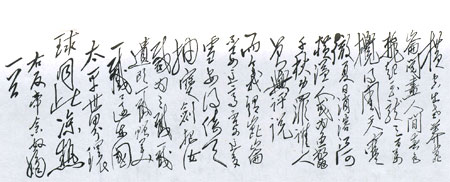 横空出世莽昆
崙阅尽人间春色
飞起玉龙三百万
攪得周天寒
彻夏日消溶江河
横溢人或为鱼鳖
千秋功罪谁人
曾與評説
而今我谓崑崙
不要这高不要这多
雪安得倚天
抽宝剑把汝
裁为三截一截
遗欧一截赠美
一截國
太平世界環
球同此凉热
右反帝念奴嬌
一首